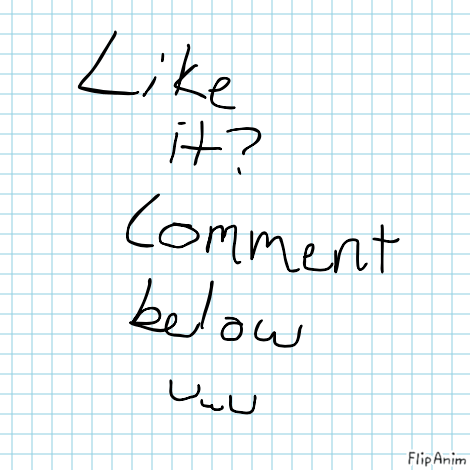 Like
it?
Comment
below
UwU
FlipAnim